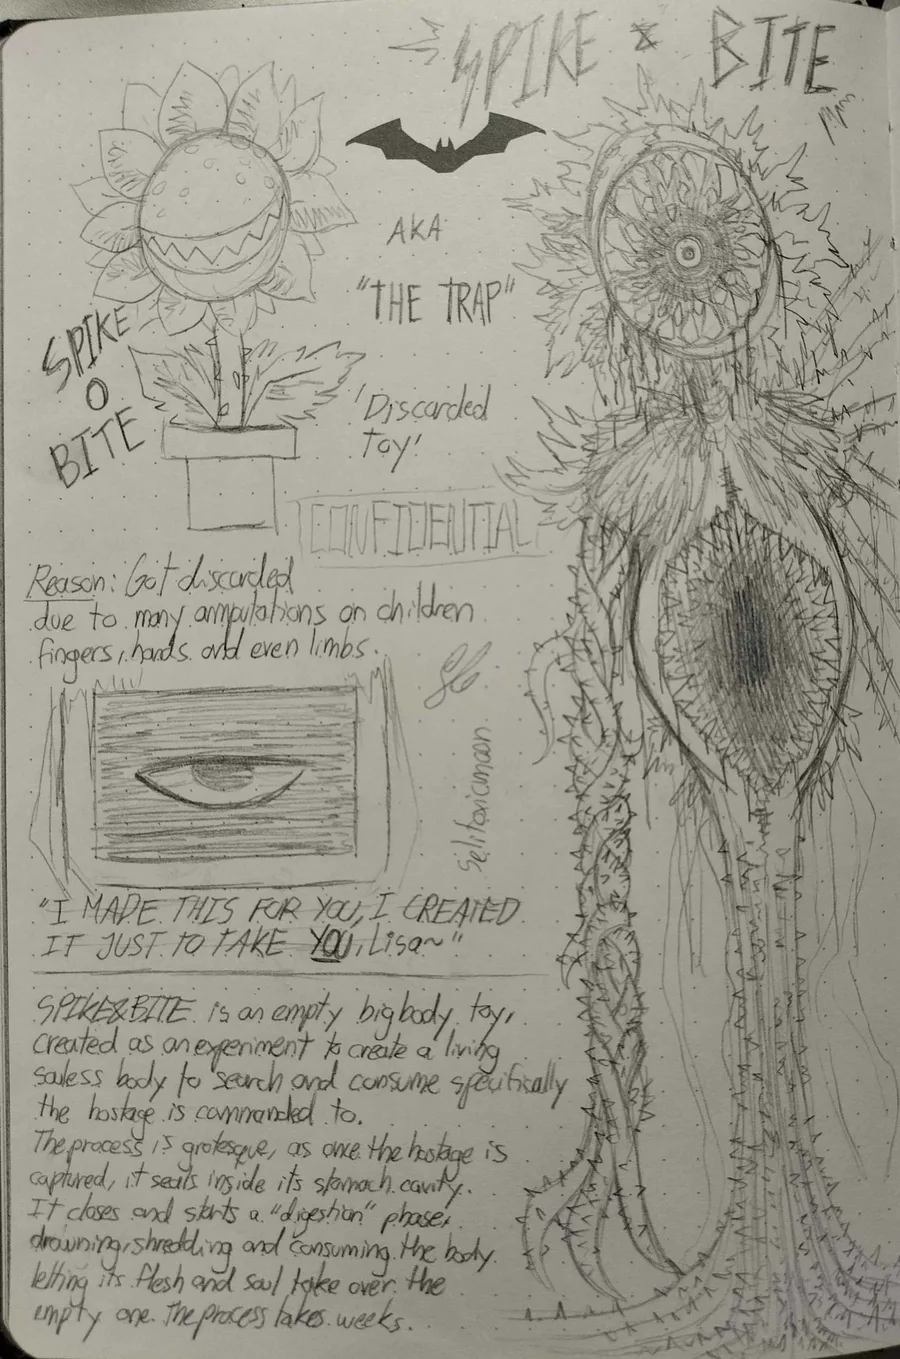 SPIKE & BITE
AKA
"THE TRAP"
SPIKE
O
BITE
'Discarded
toy'
CONFIDENTIAL
Reason: Got discarded
due to many amputations on children
fingers, hands and even limbs.
Selitaricumoon
"I MADE THIS FOR YOU, I CREATED
IT JUST TO TAKE YOU, Lisa~"
SPIKE&BITE is an empty big body toy,
created as an experiment to create a living
souless body to search and consume specifically
the hostage is commanded to.
The process is grotesque, as once the hostage is
captured, it seals inside its stomach cavity.
It closes and starts a "digestion" phase,
drowning, shredding and consuming the body
letting its flesh and soul take over the
empty one. The process takes weeks.